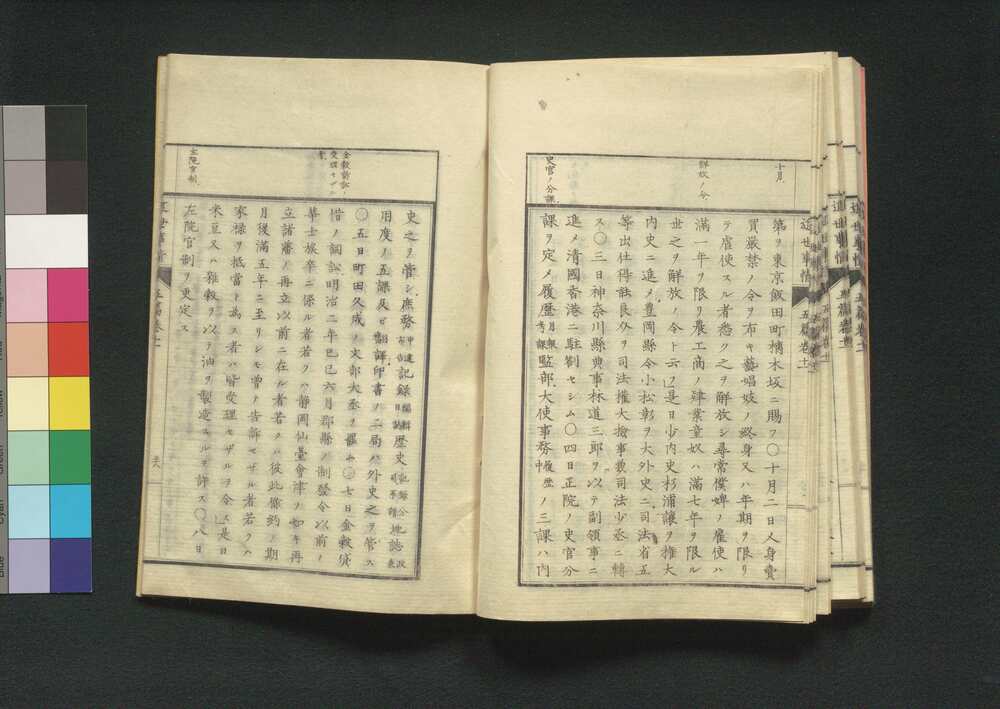 十月
解放ノ令
史官ノ分課
近世事情
五篇巻十一
第ヲ東京飯田町楠木坂ニ賜フ〇十月二日人身賣
買嚴禁ノ令ヲ布キ藝娼妓ノ終身又ハ年期ヲ限リ
テ虐使スル者悉ク之ヲ解放シ尋常僕婢ノ雇使ハ
満一年ヲ限リ農工商ノ肄業童奴ハ満七年ヲ限ル
世之ヲ解放ノ令ト云フ是日少内史杉浦讓ヲ權大
内史ニ進メ豊岡縣令小松彰ヲ大外史ニ司法省五
等出仕得能良介ヲ司法權大檢事兼司法少丞ニ轉
ス〇三日神奈川縣典事林道三郎ヲ以テ副領事ニ
進メ清國香港ニ駐劄セシム〇四日正院ノ史官分
課ヲ定メ履歴月報考課監部大使事務履歴ノ三課ハ内
金穀訴訟ノ受理セザル
左院官制
史之ヲ管シ庶務申達布告記録編輯日誌歴史記録公司享贖地誌
用度ノ五課及ビ翻譯印書ノ二局ハ外史之ヲ管ス
〇五日町田久成ノ文部大丞ヲ罷ム〇七日金穀貸
借ノ詞訟明治二年己巳六月郡縣ノ制發令以前ノ
華士族卒ニ係ル者若クハ靜岡仙臺會津ノ如キ再
立諸藩ノ再立以前ニ在ル者若クハ彼此條約ノ期
月後満五年ニ至リシモ曽テ告訴セザル者若クハ
家禄ヲ抵當ト為ス者ハ皆受理セザルヲ令ス是日
米豆又ハ雜穀ヲ以テ油ヲ製造スルヲ許ス〇八日
左院官制ヲ更定ス